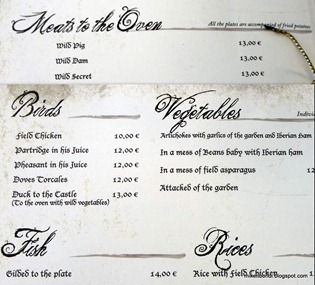 Meats to the Oven
All the plates are accompanied of fried potatoes
Wild Pig 13,00 €
Wild Dam 13,00 €
Wild Secret 13,00 €
Birds
Field Chicken 10,00 €
Partridge in his Juice 12,00 €
Pheasant in his Juice 12,00 €
Doves Torcales 12,00 €
Duck to the Castle 13,00 €
(To the oven with wild vegetables)
Vegetables
Artichokes with garlics of the garden and Iberian Ham
In a mess of Beans baby with Iberian ham
In a mess of field asparagus 12
Attacked of the garden
Fish
Gilded to the plate 14,00 €
Rices
Rice with Field Chicken